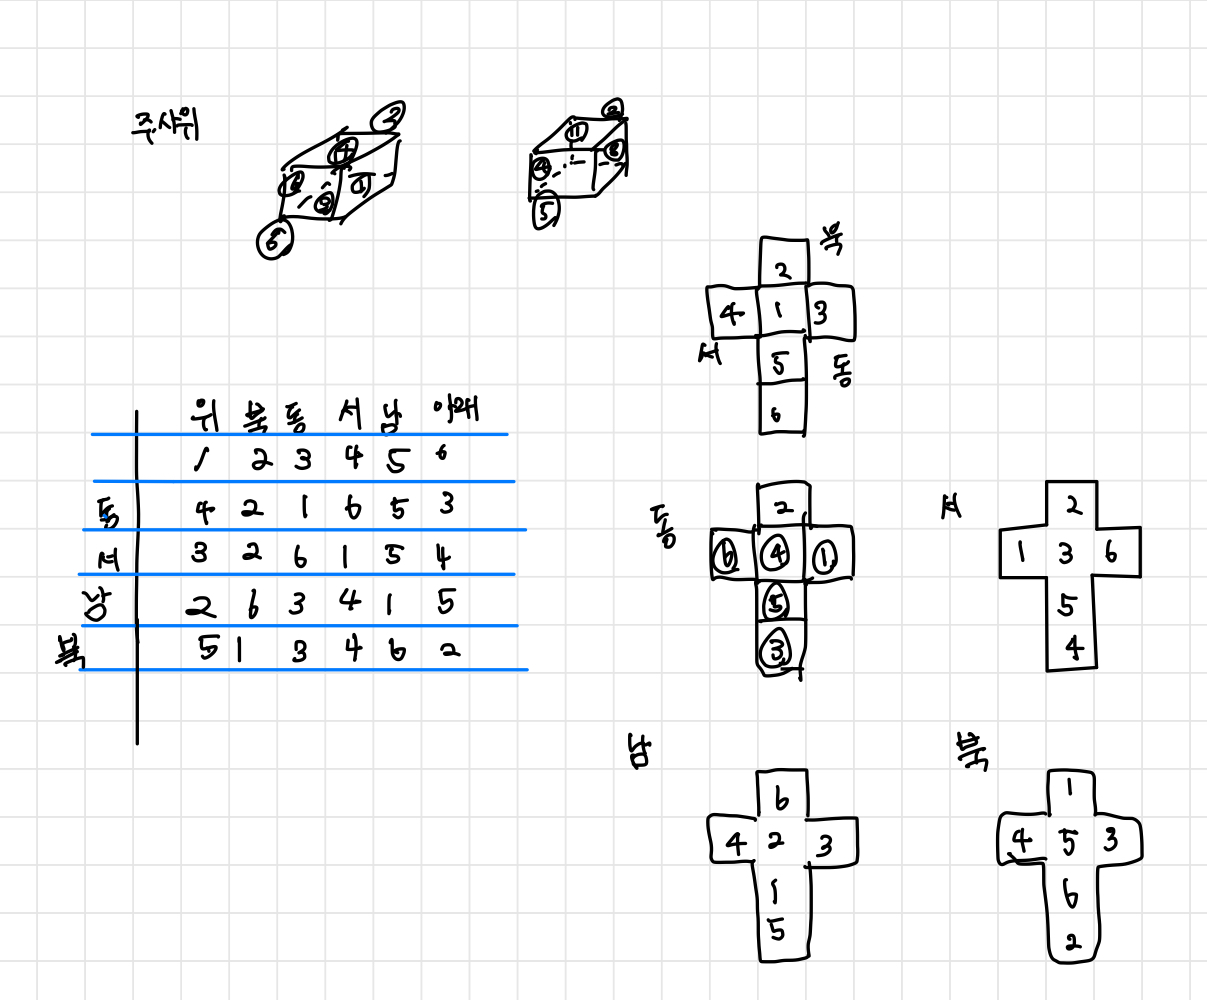 주사위
2
4
2
1
5
6
1
3
4
5
북
2
4 1 3
서
5
동
6
위 북 동 서 남 아래
1 2 3 4 5 6
동 4 2 1 6 5 3
서 3 2 6 1 5 4
남 2 6 3 4 1 5
북 5 1 3 4 6 2
동
2
6 4 1
5
3
서
2
1 3 6
5
4
남
6
4 2 3
1
5
북
1
4 5 3
6
2